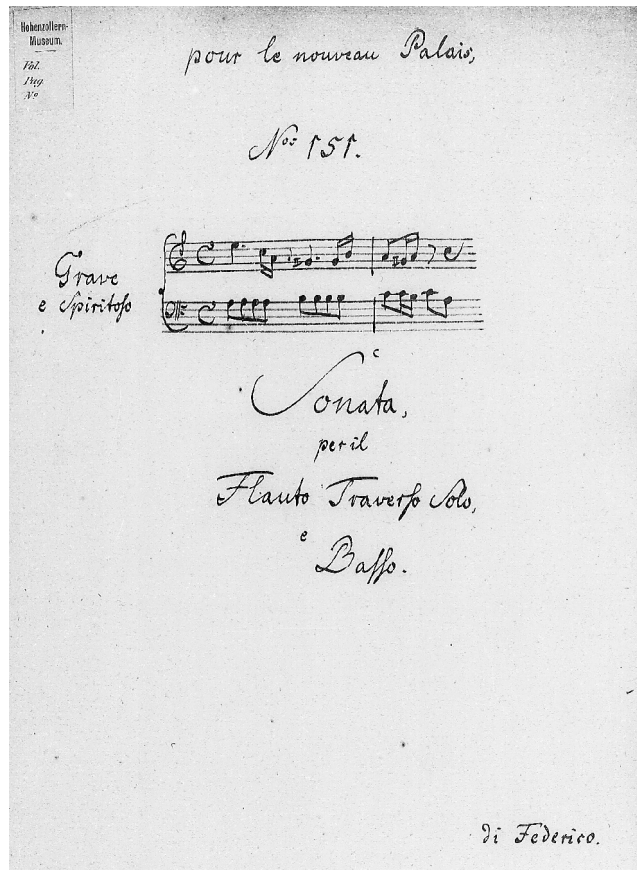 Hohenzollern-
Museum.
Vol.
Pag.
Nº
pour le nouveau Palais,
Nº: 151.
Grave
e Spiritoso
Sonata,
per il
Flauto Traverso Solo,
e
Basso.
di Federico.